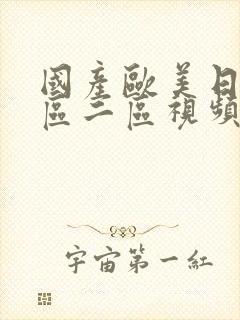 國產歐美日
區二區視頻
宇宙第一紅